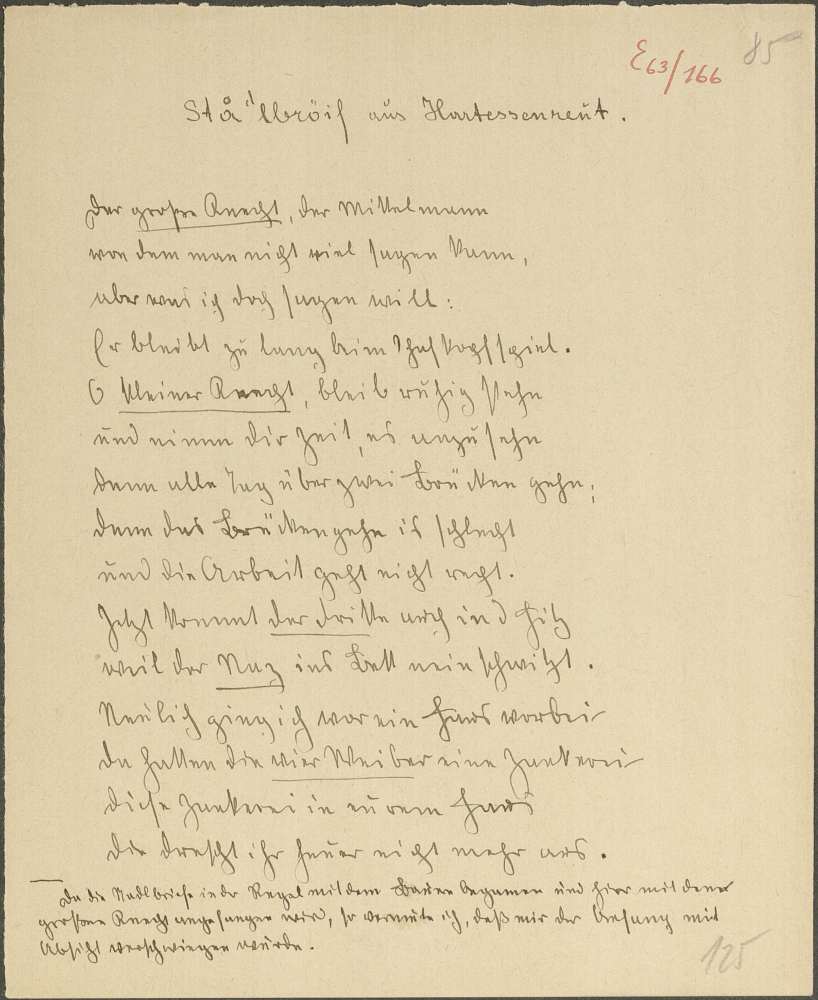 E63/166
85
Stå'lbröif aus Hartessenreut.
Der große Knecht, der Mittelmann
von dem man nicht viel sagen kann,
aber was ich doch sagen will:
Er bleibt zu lang beim Schafkopfspiel.
O kleiner Knecht, bleib ruhig stehn
und nimm dir Zeit, es anzusehn
denn alle Tag über zwei Brücken gehn;
denn das Brückengehn is schlecht
und die Arbeit geht nicht recht.
Jetzt kommt der dritte auch in d Hitz
weil der Naz ins Bett neinschwitzt.
Neulich ging ich vor ein Haus vorbei
da hatten die vier Weiber eine Zankerei
diese Zankerei in eurem Haus
die drescht ihr heuer nicht mehr aus.
Da die Stadlbriefe in der Regel mit dem Bauern beginnen und hier mit dem
großen Knecht angefangen wird, so vermute ich, daß mir der Anfang mit
Absicht verschwiegen wurde.
125